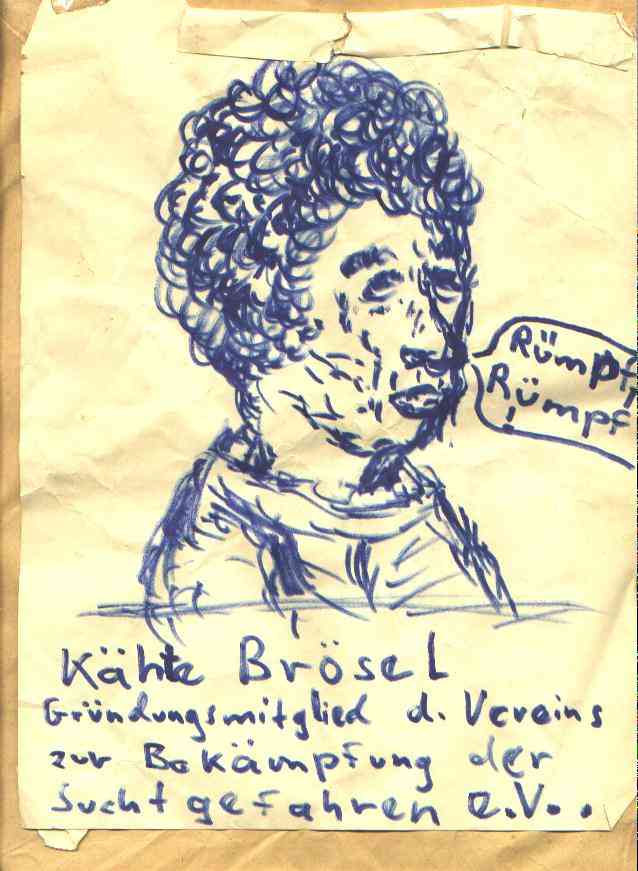 Rümpf
Rümpf
!
Kähte Brösel
Gründungsmitglied d. Vereins
zur Bekämpfung der
Suchtgefahren e.V..